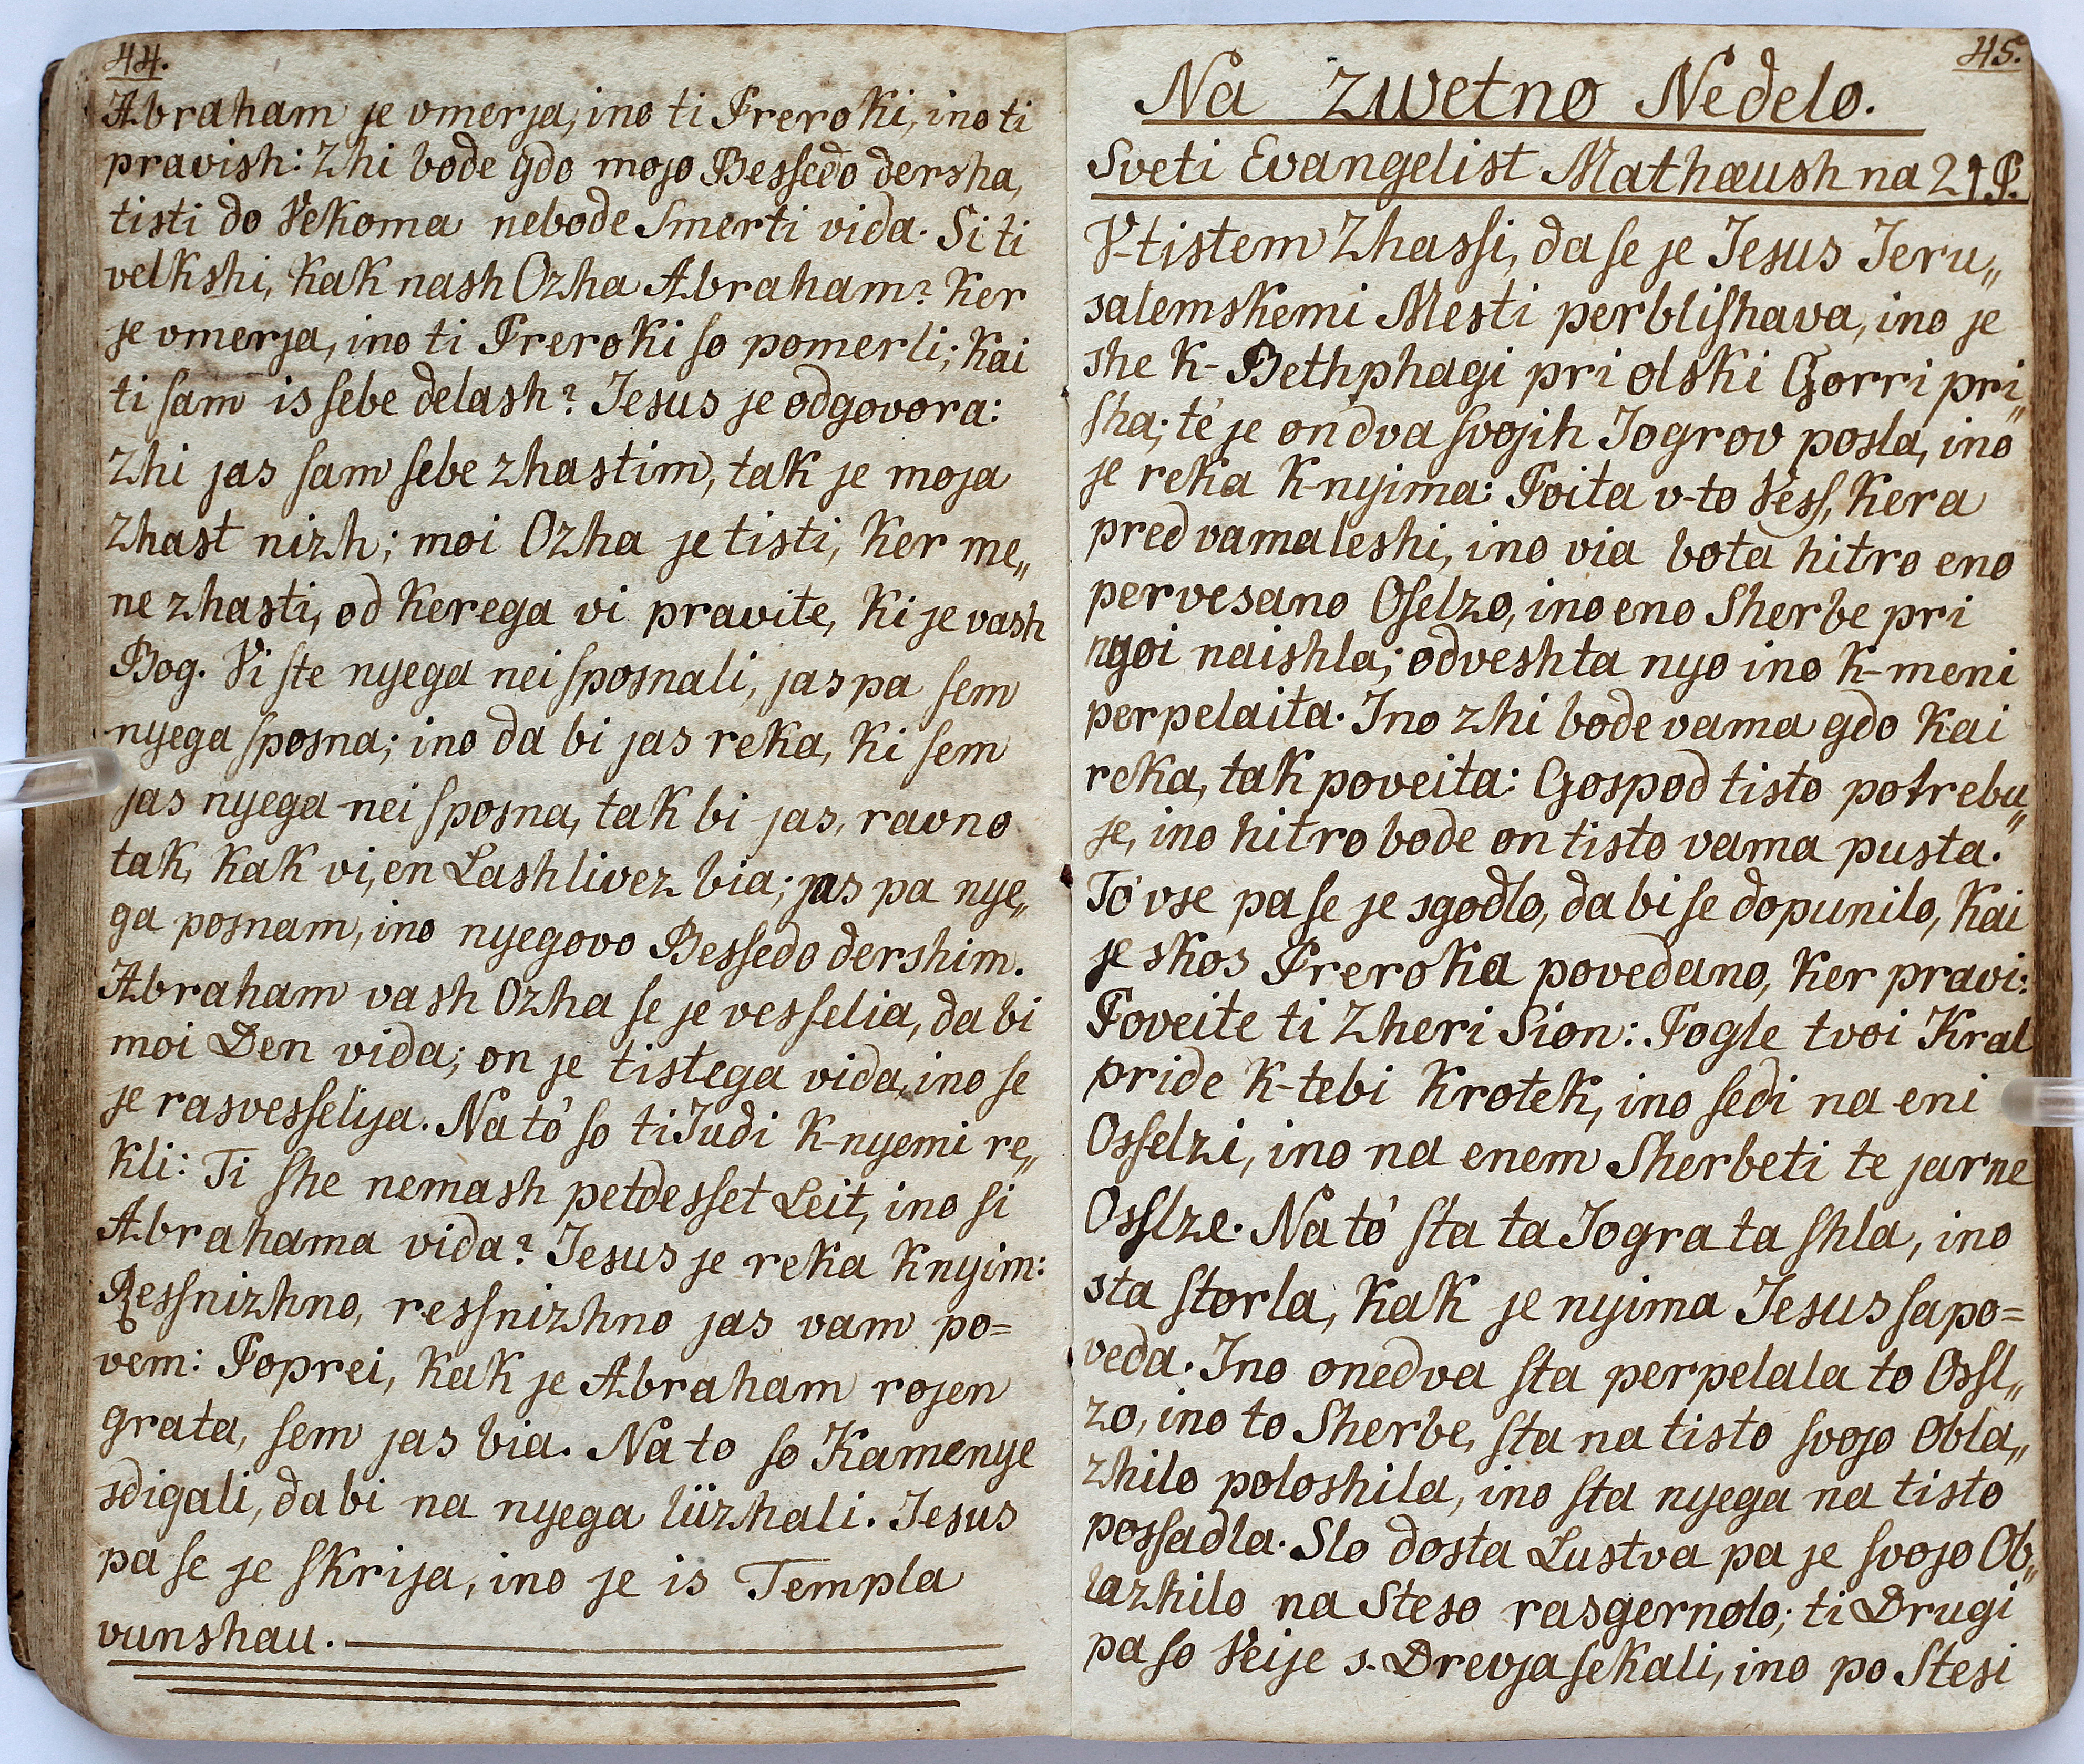 44.
Abraham je vmerja, ino ti Preroki, ino ti
pravish: Zhi bode gdo mojo Besſedo dersha,
tisti do Vekoma nebode Smerti vida. Si ti
velkshi, kak nash Ozha Abraham? ker
je vmerja, ino ti Preroki ſo pomerli; kai
ti ſam is ſebe delash? Jesus je odgovora:
Zhi jas ſam ſebe zhastim, tak je moja
Zhast nizh; moi Ozha je tisti, ker me„
ne zhasti, od kerega vi pravite, ki je vash
Bog. Vi ſte nyega nei ſposnali, jas pa ſem
nyega ſposna; ino da bi jas reka, ki ſem
jas nyega nei ſposna, tak bi jas, ravno
tak, kak vi, en Lashlivez bia; jas pa nye„
ga posnam, ino nyegovo Besſedo dershim.
Abraham vash Ozha ſe je vesſelia, da bi
moi Den vida; on je tistega vida, ino se
je rasvesſelija. Na tó ſo ti Judi k-nyemi re„
kli: Ti ſhe nemash petdesſet Leit, ino ſi
Abrahama vida? Jesus je reka k nyim:
Resſnizhno, resſnizhno jas vam po=
vem: Poprei, kak je Abraham rojen
grata, ſem jas bia. Na to ſo Kamenye
sdigali, da bi na nyega lüzhali. Jesus
pa ſe je ſkrija, ino je is Templa
vunshau.
45.
Na zwetno Nedelo.
Sveti Evangelist Mathæush na 21 P.
V-tistem Zhasſi, da ſe je Jesus Jeru„
salemskemi Mesti perbliſhava, ino je
she k-Bethphagi pri olski Gorri pri„
ſha; té je on dva ſvojih Jogrov posla, ino
je reka k-nyima: Poita v-to Vesſ, kera
pred vama leshi, ino via bota hitro eno
pervesano Oſelzo, ino eno Sherbe pri
nyoi naishla; odveshta nyo ino k-meni
perpelaita. Ino zhi bode vama gdo kai
reka, tak poveita: Gospod tisto potrebu„
je, ino hitro bode on tisto vama pusta.
Tó vse pa ſe je sgodlo, da bi ſe dopunilo, kai
je skos Preroka povedano, ker pravi:
Poveite ti Zheri Sion: Pogle tvoi Kral
pride k-tebi krotek, ino ſedi na eni
Osſelzi, ino na enem Sherbeti te jarne
Osſlze. Na tó ſta ta Jogra ta ſhla, ino
sta ſtorla, kak je nyima Jesus ſapo=
veda. Ino onedva ſta perpelala to Osſl„
zo, ino to Sherbe, ſta na tisto svojo Obla„
zhilo poloshila, ino ſta nyega na tisto
posſadla. Slo dosta Lustva pa je ſvojo Ob„
lazhilo na Steso rasgernolo; ti Drugi
pa ſo Veije s-Drevja ſekali, ino po Stesi